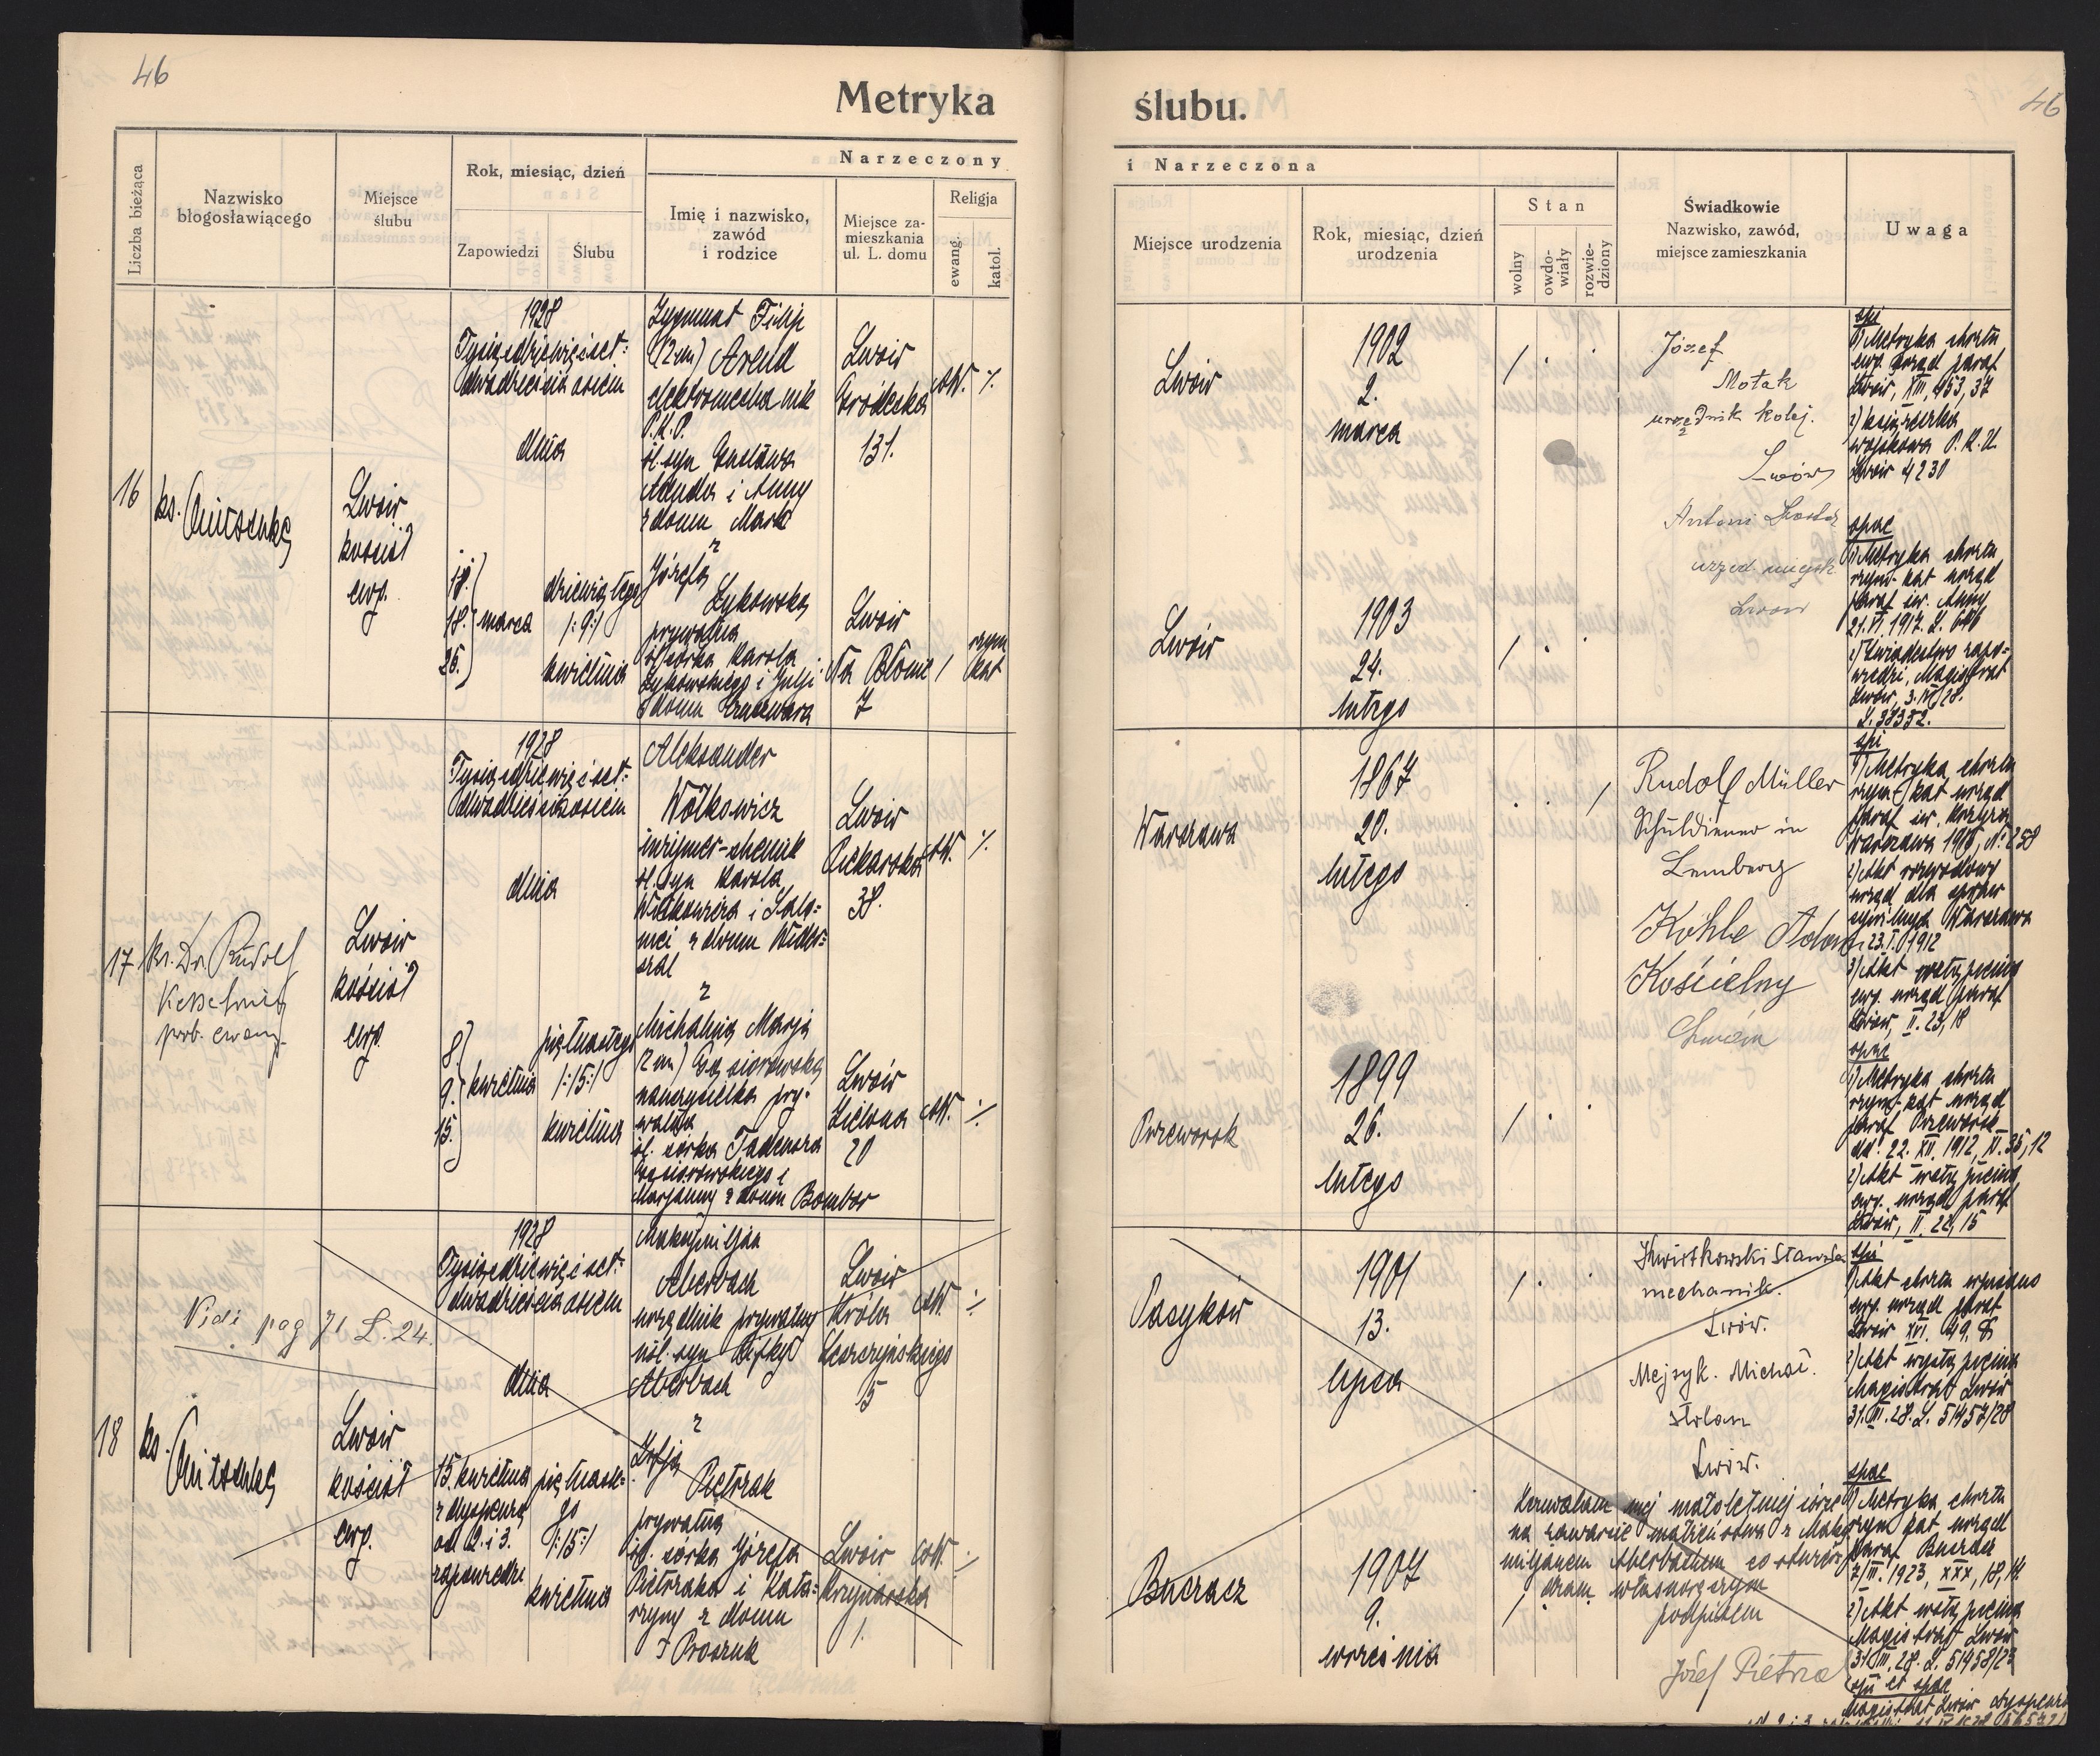 46
Metryka
ślubu.
46
Liczba bieżąca
Nazwisko
błogosławiącego
Miejsce
ślubu
Rok, miesiąc, dzień
Zapowiedzi
Ślubu
Narzeczony
Imię i nazwisko,
zawód
i rodzice
Miejsce za-
mieszkania
ul. L. domu
Religja
ewang.
katol.
i Narzeczona
Miejsce urodzenia
Rok, miesiąc, dzień
urodzenia
Stan
wolny
owdo-
wiały
rozwie-
dziony
Świadkowie
Nazwisko, zawód,
miejsce zamieszkania
Uwaga
16
ks.
Lwów
kościół
ewg.
1928
Tysiącdziewięćset-
dwadzieścia ośm
dnia
18.
25.
marca
dziewiątego
/:9:/
kwietnia
Zygmunt Filip
(2 im) Arend
elektromechanik
P.K.P.
śl. syn Gustawa
Arenda i Anny
z domu Mark
z
Józefą
Żukowską
prywatną
śl. córka Karola
Żukowskiego i Julji
z domu
Lwów
Gródecka
131.
Lwów
Na Błonie
7
rzym
kat
Lwów
1902
2.
marca
Lwów
1903
24.
lutego
Józef
Motak
urzędnik kolej.
Lwów
Antoni
urzęd. miejsk.
Lwów
1) Metryka chrztu
ewg. urząd paraf.
Lwów, XIII, 453, 37
2) książeczka
wojskowa P.K.U.
Lwów 4230
1) Metryka chrztu
rzym-kat urząd
paraf. św. Anny
21. VI. 1917. L.
2) Świadectwo zapo-
wiedzi, Magistrat
Lwów, 3. IV. 28.
L. 38352.
17
ks. Dr Rudolf
Kesselring
prob. ewang.
Lwów
kościół
ewg.
1928
Tysiącdziewięćset-
dwadzieścia ośm
dnia
8
9.
15.
kwietnia
piętnastego
/:15:/
kwietnia
Aleksander
Wółkowicz
inżynier-chemik
śl. syn Karola
Wółkowicza i Salo-
mei z domu Wider-
szal
z
Michaliną Marją
(2 im) Gąsiorowską
nauczycielka pry-
watna
śl. córka Tadeusza
Gąsiorowskiego i
Marjanny z domu Bombar
Lwów
Piekarska
38.
Lwów
Zielona
20
Warszawa
1867
20.
lutego
Przeworsk
1899
26.
lutego
Rudolf Müller
Schuldiener in
Lemberg
Köhle Adam
Kościelny
1) Metryka chrztu
rzym-kat urząd
paraf św. Krzyża
2) Akt rozwodowy
urząd dla spraw
cywilnych Warszawa
23. I. 1912
3) Akt wstąpienia
ewg. urząd paraf
Lwów, II. 23, 18
1) Metryka chrztu
rzym-kat urząd
paraf Przeworsk
dd. 22. XII. 1912, IV. 35, 12
2) Akt wstąpienia
ewg. urząd paraf
Lwów, II. 22, 15
Vidi pag 71 L. 24.
18
ks.
Lwów
kościół
ewg.
1928
Tysiącdziewięćset-
dwadzieścia ośm
dnia
15. kwietnia
z dyspenzą
od 2. i 3.
zapowiedzi
piętnaste-
go
/:15:/
kwietnia
Maksymiljan
Aberbach
urzędnik prywatny
nśl. syn Rifki
Aberbach
z
Zofją
Pietrzak
prywatną
śl. córka Józefa
Pietrzaka i Kata-
rzyny z domu
Lwów
Króla
Leszczyńskiego
15
Lwów
1.
Pasyków
1901
13.
lipca
Buczacz
1907
9.
września
Kwiatkowski Stanisław
mechanik.
Lwów.
Mejzyk. Michał.
stolarz
Lwów.
Zezwalam mej małoletniej córce
na zawarcie małżeństwa z Maksy-
miljanem Aberbachem co stwier-
dzam własnoręcznym
podpisem
Józef Pietrza
1) Akt chrztu
ewg. urząd paraf
Lwów XVI. 49, 8
2) Akt wystąpienia
Magistrat Lwów
31. III. 28. L. 51457/28
1) Metryka chrztu
rzym kat urząd
paraf Buczacz
7/III. 1923, XXX, 18, 14
2) Akt wstąpienia
Magistrat Lwów
31. III. 28. L. 51458/28
Magistrat Lwów dyspenza